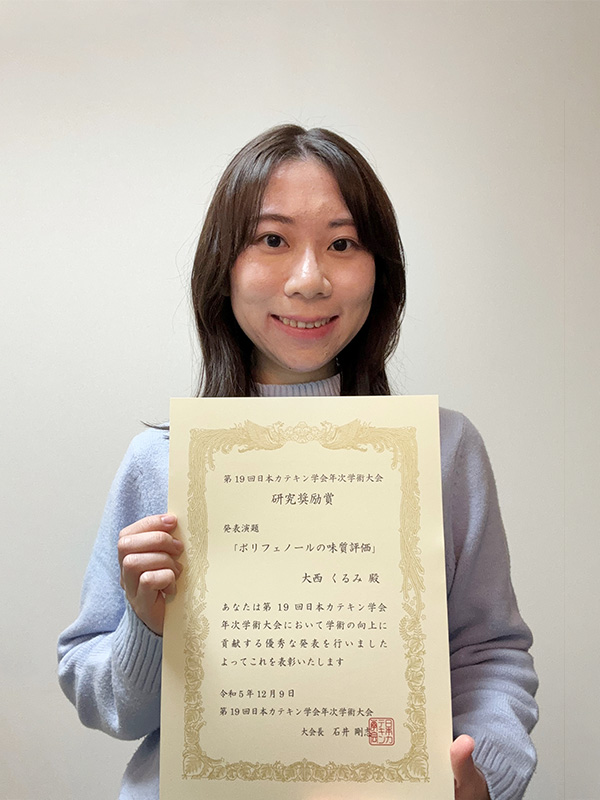 第19回日本カテキン学会年次学術大会
研究奨励賞
発表演題
「ポリフェノールの味質評価」
大西 くるみ 殿
あなたは第 19 回日本カテキン学会
年次学術大会において学術の向上に
貢献する優秀な発表を行いました
よってこれを表彰いたします
令和5年12月9日
第19回日本カテキン学会年次学術大会
大会長 石井 剛志